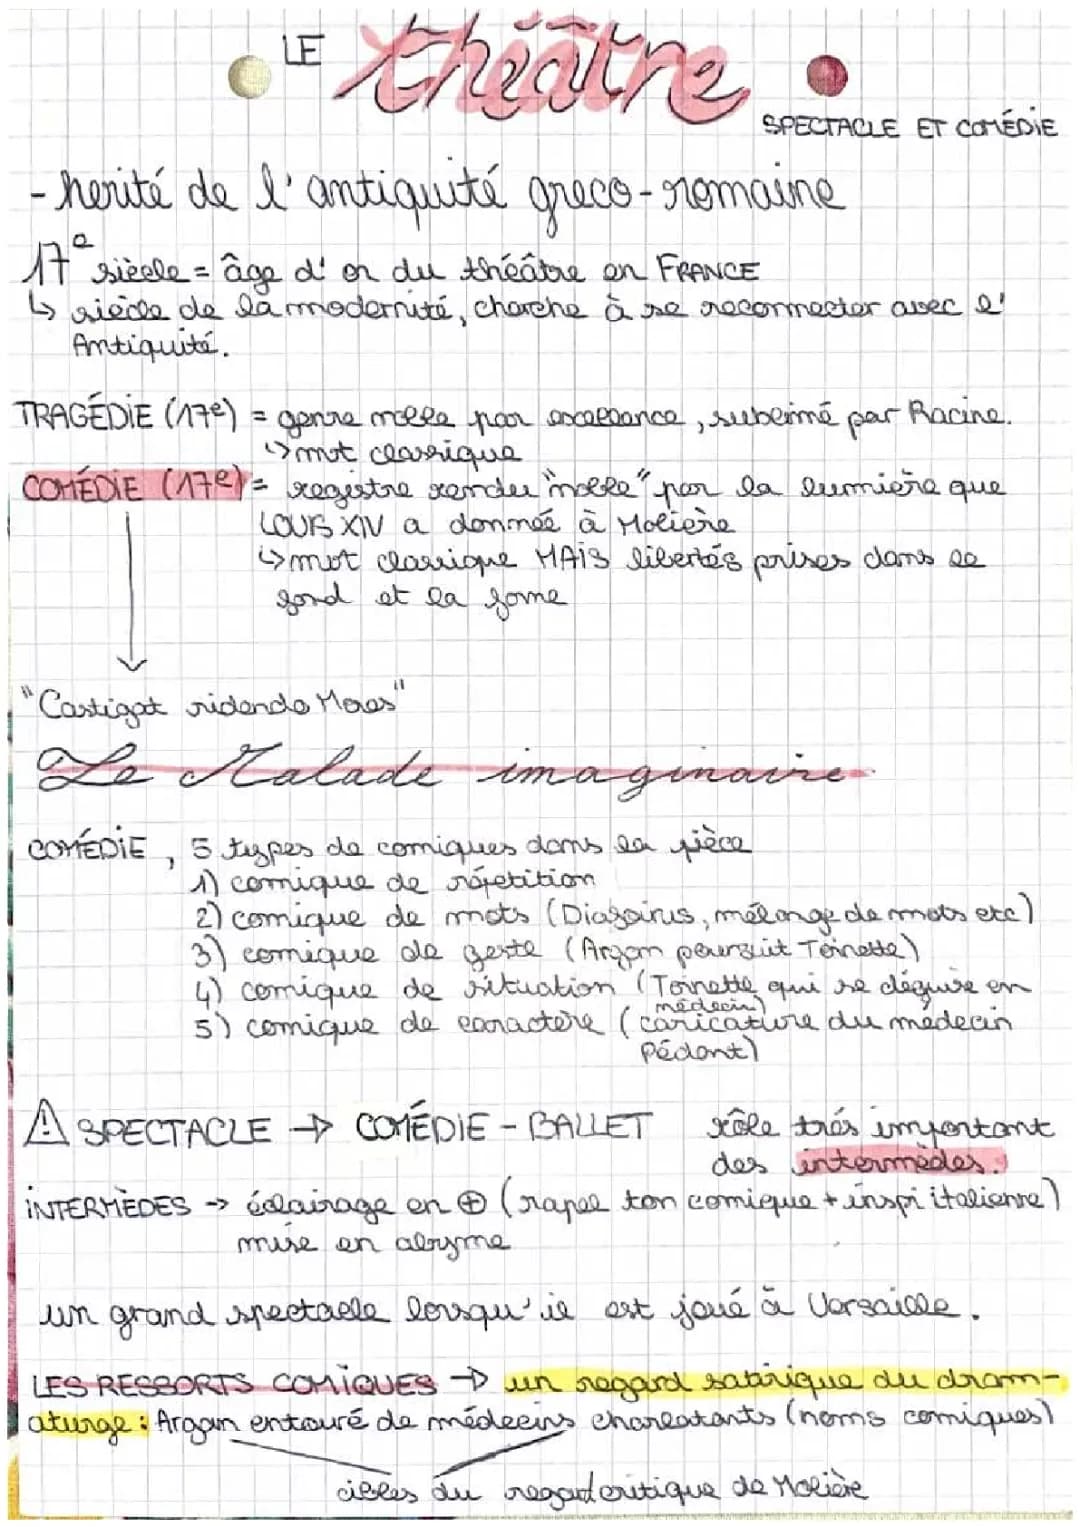 LE théâtre
SPECTACLE ET COMÉDIE
- herité de l'antiquité greco-romaine
17e siècle = âge d'or du théâtre en FRANCE
↳ siècle de la modernité, cherche à se reconnecter avec l'
Antiquité.
TRAGÉDIE (17e) = genre noble par excellance, sublimé par Racine.
↳ mvt classique
COMÉDIE (17e) = registre rendu "noble" par la lumière que
LOUIS XIV a donnée à Molière
↳ mvt classique MAIS libertés prises dans le
fond et la forme
"Castigat ridendo Mores"
Le Malade imaginaire
COMÉDIE, 5 types de comiques dans la pièce
1) comique de répetition
2) comique de mots (Diafoirus, mélange de mots etc)
3) comique de geste (Argan poursuit Toinette)
4) comique de situation (Toinette qui se déguise en
médecin)
5) comique de caractère (caricature du médecin
pédant)
⚠ SPECTACLE → COMÉDIE - BALLET rôle trés important
des intermèdes.
INTERMÈDES → éclairage en ⊕ (rapel ton comique + inspi italienne)
mise en abyme
un grand spectacle lorsqu'il est joué à Versaille.
LES RESSORTS COMIQUES → un regard satirique du dram-
aturge : Argan entouré de médecins charlatants (noms comiques)
cibles du regard critique de Molière